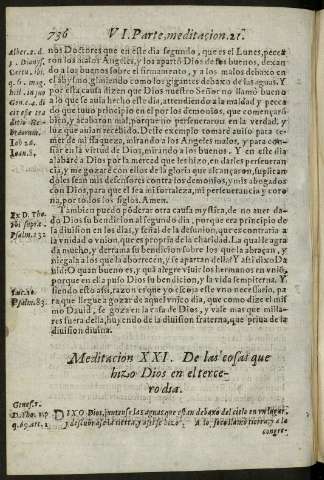 736 VI. Parte, meditacion. 21.
nos Doctores que en este dia segundo, que es el Lunes, peca-
ron los malos Angeles, y los apartó Dios de los buenos, dexan-
do a los buenos sobre el firmamento, y a los malos debaxo en
el abysmo, gimiendo como los gigantes debaxo de las aguas. Y
por esta causa dizen que Dios nuestro Señor no llamó bueno
a lo que se auia hecho este dia, attendiendo a la maldad y pecca-
do que tuuo principio en el por los demonios, que començarõ
bien, y acabaron mal, porque no perseueraron en la verdad, y
luz que auian recebido. Deste exemplo tomaré auiso para te-
mer de mi flaqueza, mirando a los Angeles malos, y para con-
fiar en la virtud de Dios, mirando a los buenos. Y en este dia
alabaré a Dios por la merced que les hizo, en darles perseueran
cia, y me gozaré con ellos de la gloria que alcançaron, suplicã-
doles sean mis defensores contra los demonios, y mis abogados
con Dios, para que el sea mi fortaleza, mi perseuerancia y coro-
na, por todos los siglos. Amen.
Tambien puedo põderar otra causa mystica, de no auer da-
do Dios su bendicion al segundo dia, porque era principio de
la diuision en los dias, y señal de la desunion, que es contraria a
la vnidad o vnion, que es propria de la charidad. La qual le agra
da mucho, y derrama su bendicion sobre los que la abraçan, y
niegala a los que la aborrecen, y se apartan della: Y assi dixo Da
uid: O quan bueno es, y quã alegre viuir los hermanos en vno,
porque en ella puso Dios su bendicion, y la vida sempiterna. Y
siendo esto assi, razon es que yo escoja este vno necessario, pa-
ra que llegue a gozar de aquel vnico dia, que como dize el mis-
mo Dauid, se goza en la casa de Dios, y vale mas que milla-
res fuera della, huyendo de la diuision fraterna, que priua de la
diuision diuina.
Meditacion XXI. De las cosas que
hizo Dios en el terce-
ro dia.
DIXO Dios, juntense las aguas que estan debaxo del cielo en vn lugar,
y descubrase la tierra, y assi se hizo. A lo seco llamo tierra, y a la
congre-
Alber. 2. d.
hist. in
Gen. c. 4.
Iob 26.
Ioan. 8.
Ex D. Tho.
Psalm. 132.
Luc. 10.
Psalm. 83.
Genes. 1.
D. Tho.